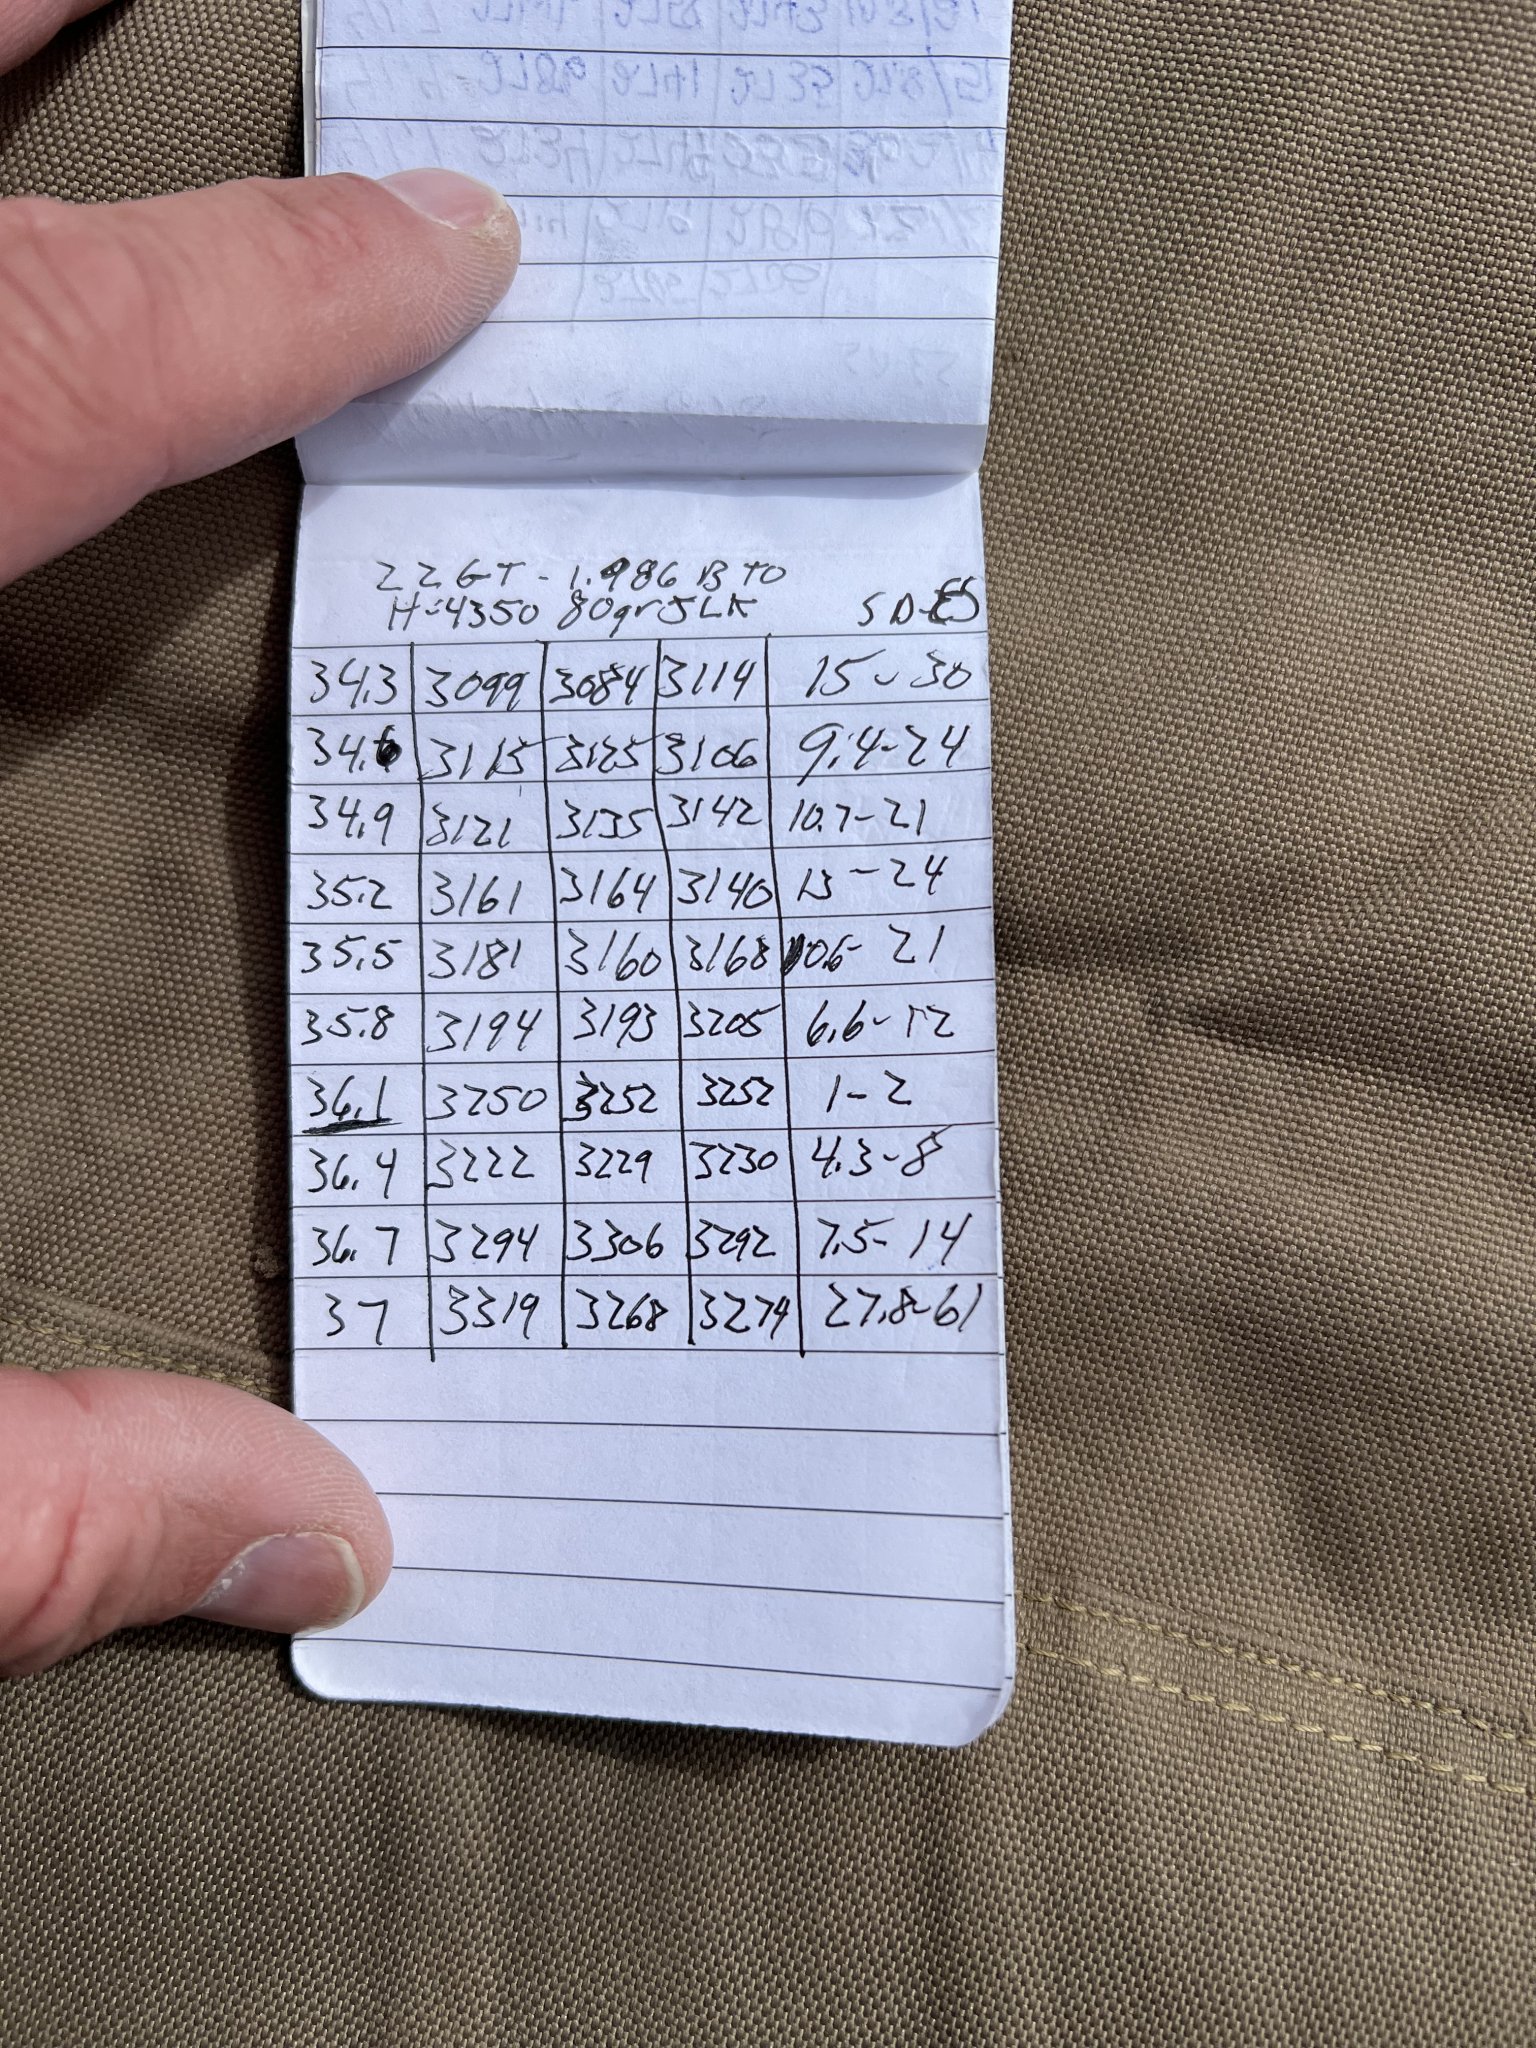 22GT - 1.986 BTO
H-4350 80gr ELR SD-ES
34.3 3099 3084 3114 15 - 30
34.6 3115 3125 3106 9.4-24
34.9 3121 3135 3142 10.7-21
35.2 3161 3164 3140 13 - 24
35.5 3181 3160 3168 10.6- 21
35.8 3194 3193 3205 6.6- 12
36.1 3250 3252 3252 1 - 2
36.4 3222 3229 3230 4.3-8
36.7 3294 3306 3292 7.5- 14
37 3319 3268 3274 27.8-61